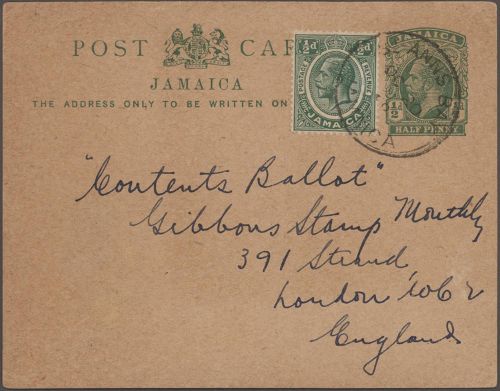 POST CAR
JAMAICA
THE ADDRESS ONLY TO BE WRITTEN ON
½d ½d
POSTAGE & REVENUE
JAMAICA
JAMAICA
½d
HALF PENNY
ANNS BAY
CA
"Contents Ballot"
Gibbons Stamp Monthly
391 Strand
London WC2
England